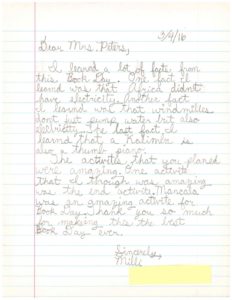 3/9/16
Dear Mrs. Peters,
I learned a lot of facts from
this Book Day. One fact I
learnd was that Africa didn't
have electricity. Another fact
I learnd was that windmilles
dont just pump water but also
elictricity. The last fact I
learnd that a Kalimba is
also a thumb piano.
The activitis that you planed
were amazing. One activite
that I though was amazing
was the end activite. Mancala
was an amazing activite for
Book Day. Thank you so much
for making this the best
Book Day ever.
Sincerely,
Milli